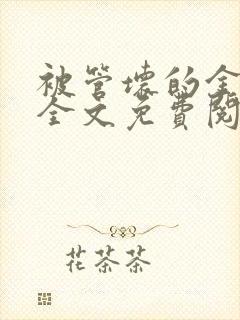 被管壞的全
全文免費閱
花茶茶